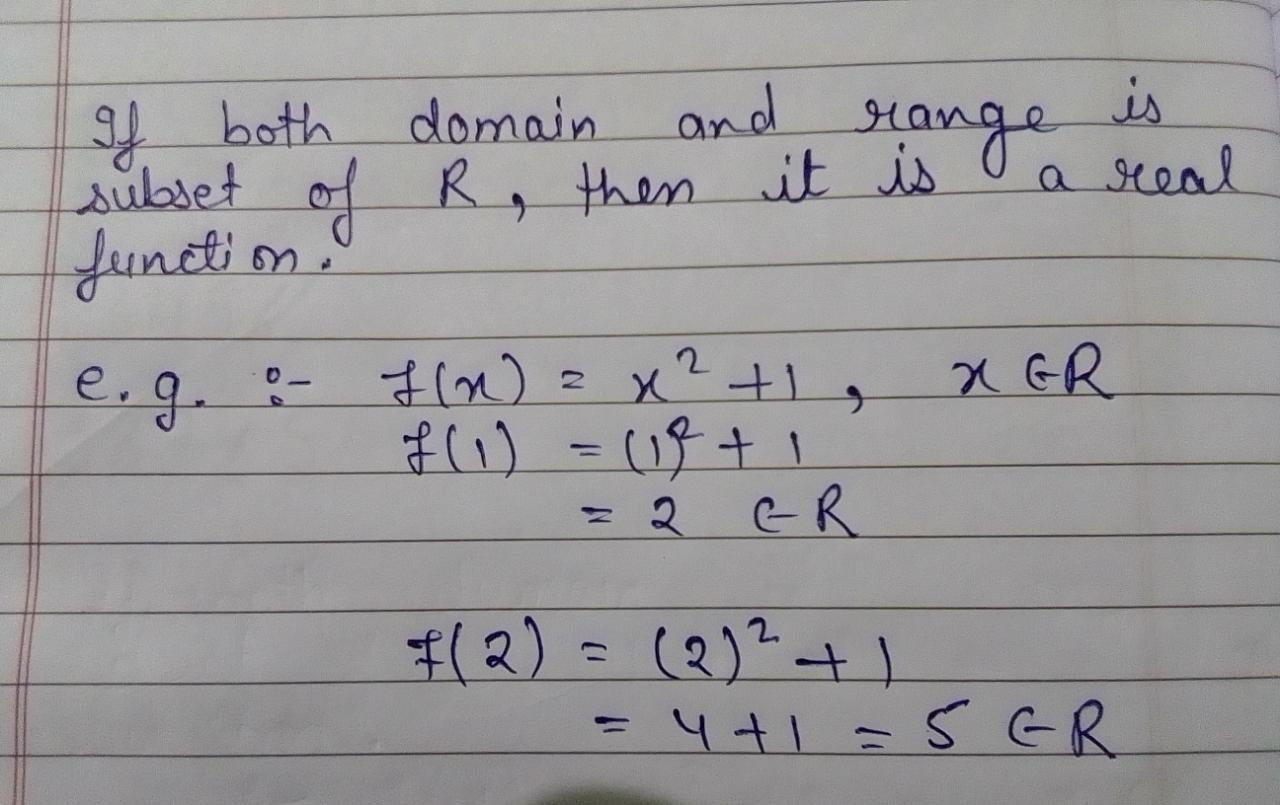 If both domain and range is
subset of R, then it is a real
function.
e.g. :- f(x) = x² + 1, x ∈ R
f(1) = (1)² + 1
= 2 ∈ R
f(2) = (2)² + 1
= 4 + 1 = 5 ∈ R